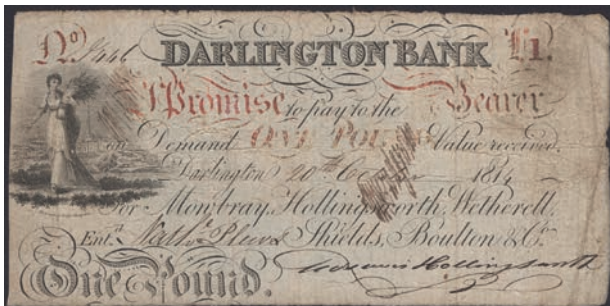 No DARLINGTON BANK £1.
I Promise to pay to the Bearer
on Demand ONE POUND Value received.
Darlington 20th 1814
For Mowbray, Hollingsworth, Wetherell,
Entd. Shields, Boulton & Co.
One Pound. Hollingsworth